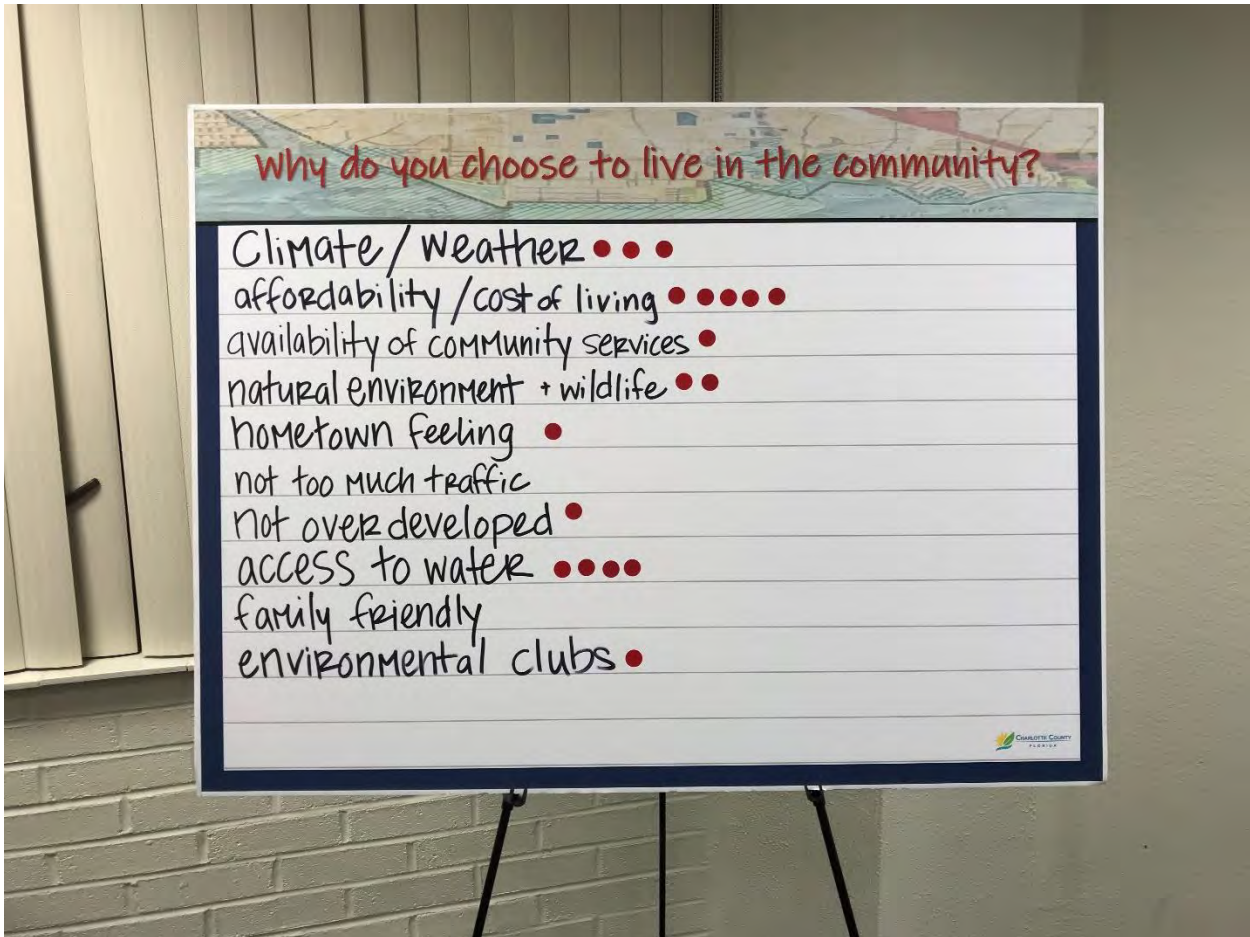 Why do you choose to live in the community?
Climate / Weather
affordability / cost of living
availability of community services
natural environment + wildlife
hometown feeling
not too much traffic
not over developed
access to water
family friendly
environmental clubs
CHARLOTTE COUNTY
FLORIDA